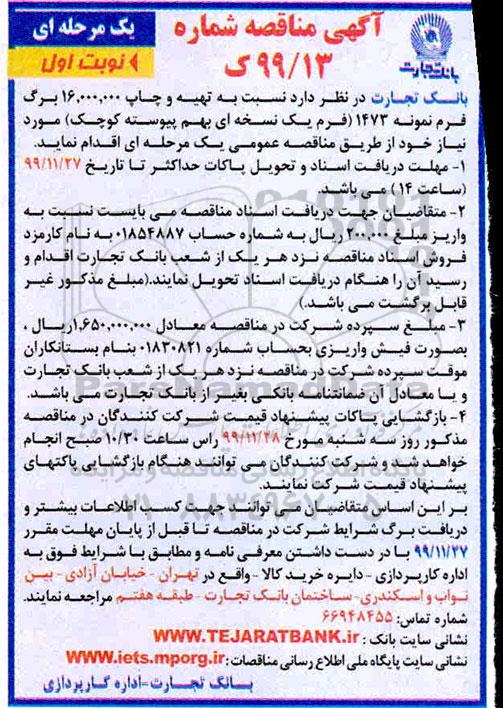 آگهی مناقصه شماره
۹۹/۱۳ ک
یک مرحله ای
نوبت اول
بانک تجارت
بانک تجارت در نظر دارد نسبت به تهیه و چاپ ۱۶,۰۰۰,۰۰۰ برگ
فرم نمونه ۱۴۷۳ (فرم یک نسخه ای بهم پیوسته کوچک) مورد
نیاز خود از طریق مناقصه عمومی یک مرحله ای اقدام نماید.
۱- مهلت دریافت اسناد و تحویل پاکات حداکثر تا تاریخ ۹۹/۱۱/۲۷
(ساعت ۱۴) می باشد.
۲- متقاضیان جهت دریافت اسناد مناقصه می بایست نسبت به
واریز مبلغ ۲۰۰,۰۰۰ ریال به شماره حساب ۰۱۸۵۴۸۸۷ به نام کارمزد
فروش اسناد مناقصه نزد هر یک از شعب بانک تجارت اقدام و
رسید آن را هنگام دریافت اسناد تحویل نمایند.(مبلغ مذکور غیر
قابل برگشت می باشد.)
۳- مبلغ سپرده شرکت در مناقصه معادل ۱,۶۵۰,۰۰۰,۰۰۰ریال ،
بصورت فیش واریزی بحساب شماره ۰۱۸۳۰۸۲۱ بنام بستانکاران
موقت سپرده شرکت در مناقصه نزد هر یک از شعب بانک تجارت
و یا معادل آن ضمانتنامه بانکی بغیر از بانک تجارت می باشد.
۴- بازگشایی پاکات پیشنهاد قیمت شرکت کنندگان در مناقصه
مذکور روز سه شنبه مورخ ۹۹/۱۱/۲۸ راس ساعت ۱۰/۳۰ صبح انجام
خواهد شد و شرکت کنندگان می توانند هنگام بازگشایی پاکتهای
پیشنهاد قیمت شرکت نمایند.
بر این اساس متقاضیان می توانند جهت کسب اطلاعات بیشتر و
دریافت برگ شرایط شرکت در مناقصه تا قبل از پایان مهلت مقرر
۹۹/۱۱/۲۷ با در دست داشتن معرفی نامه و مطابق با شرایط فوق به
اداره کارپردازی - دایره خرید کالا - واقع در تهران - خیابان آزادی - بین
نواب و اسکندری - ساختمان بانک تجارت - طبقه هفتم مراجعه نمایند.
شماره تماس: ۶۶۹۴۸۴۵۵
نشانی سایت بانک : WWW.TEJARATBANK.ir
نشانی سایت پایگاه ملی اطلاع رسانی مناقصات: WWW.iets.mporg.ir
بانک تجارت-اداره کارپردازی
ParsNamadData